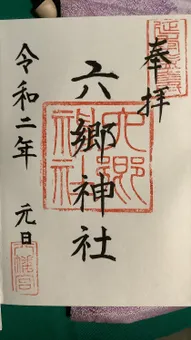 奉拝
六郷神社
令和二年 元日
六郷神社
八幡宮